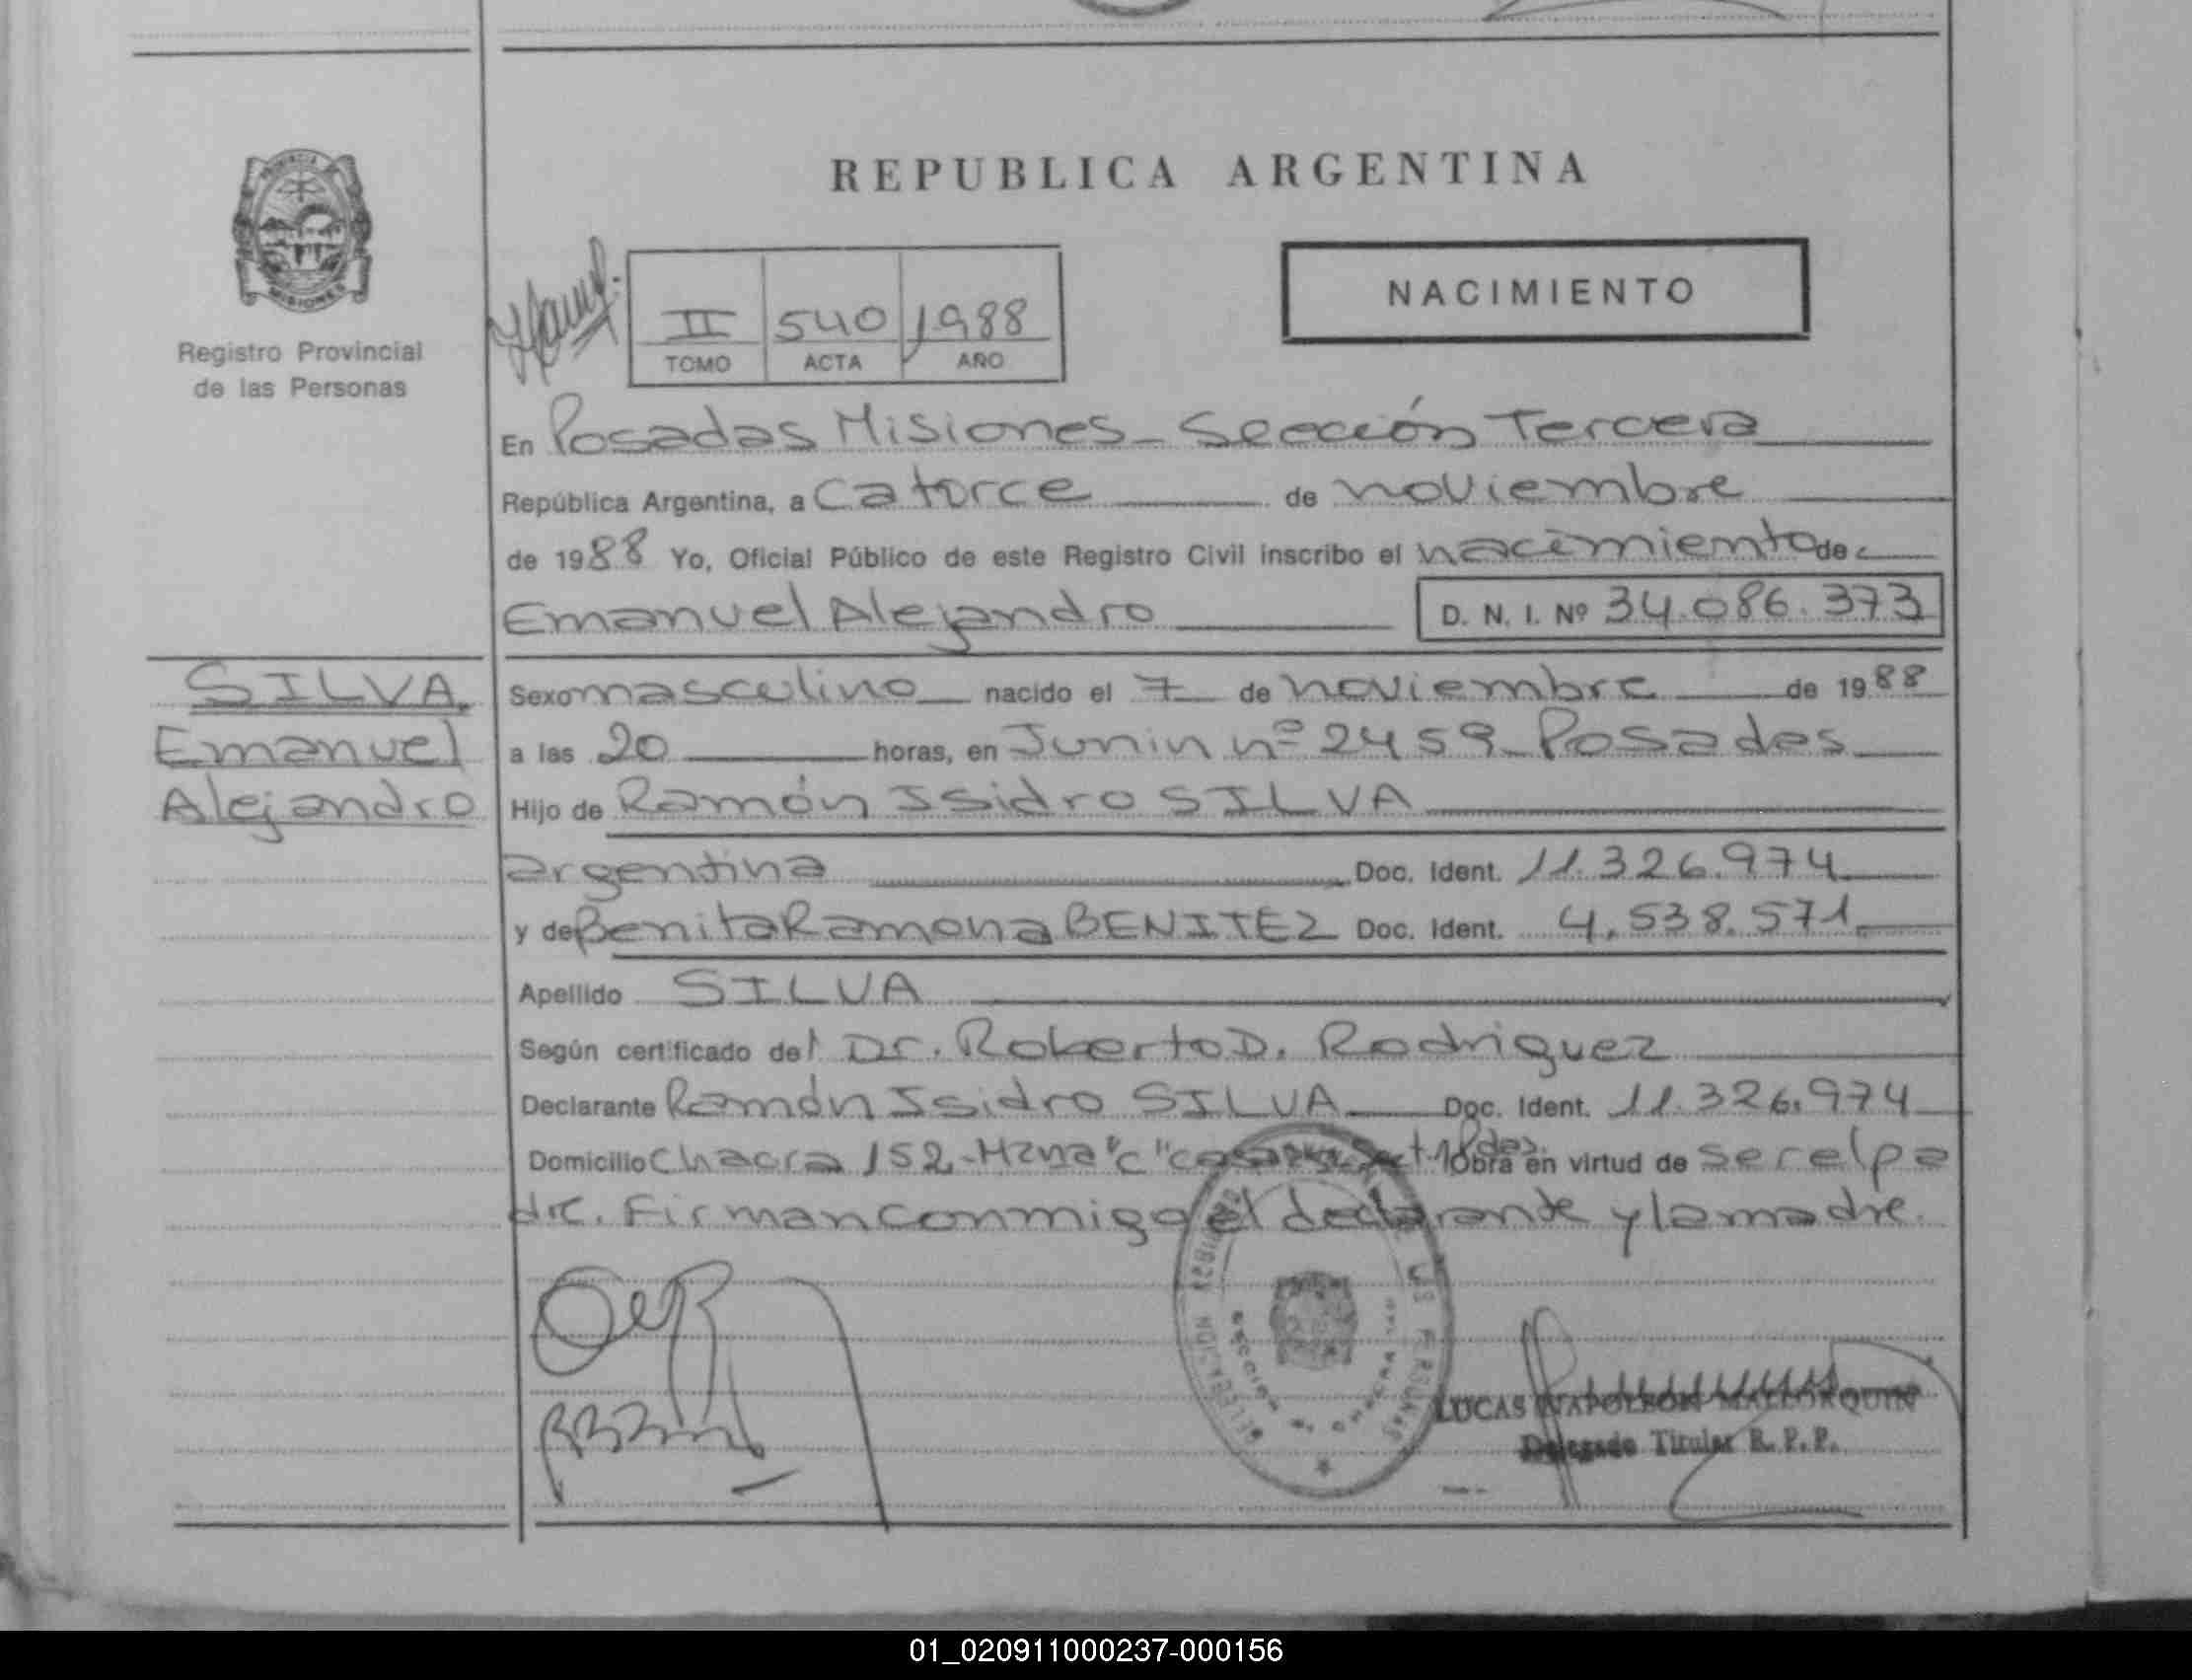 REPUBLICA ARGENTINA
PROVINCIA
MISIONES
Registro Provincial
de las Personas
II 540 1988
TOMO ACTA AÑO
NACIMIENTO
En Posadas Misiones - Sección Tercera
República Argentina, a catorce de noviembre
de 1988 Yo, Oficial Público de este Registro Civil inscribo el nacimiento de
Emanuel Alejandro D. N. I. Nº 34.086.373
SILVA,
Emanuel
Alejandro
Sexo masculino nacido el 7 de noviembre de 1988
a las 20 horas, en Junin nº 2459 Posadas
Hijo de Ramón Isidro SILVA
argentina Doc. Ident. 11.326.974
y de Benita Ramona BENITEZ Doc. Ident. 4.538.571
Apellido SILVA
Según certificado del Dr. Roberto D. Rodriguez
Declarante Ramón Isidro SILVA Doc. Ident. 11.326.974
Domicilio Chacra 152 - Mzna "C" Obra en virtud de ser el pa
dre. Firman conmigo el declarante y la madre.
LUCAS NAPOLEON MALLORQUIN
Delegado Titular R. P. P.
01_020911000237-000156